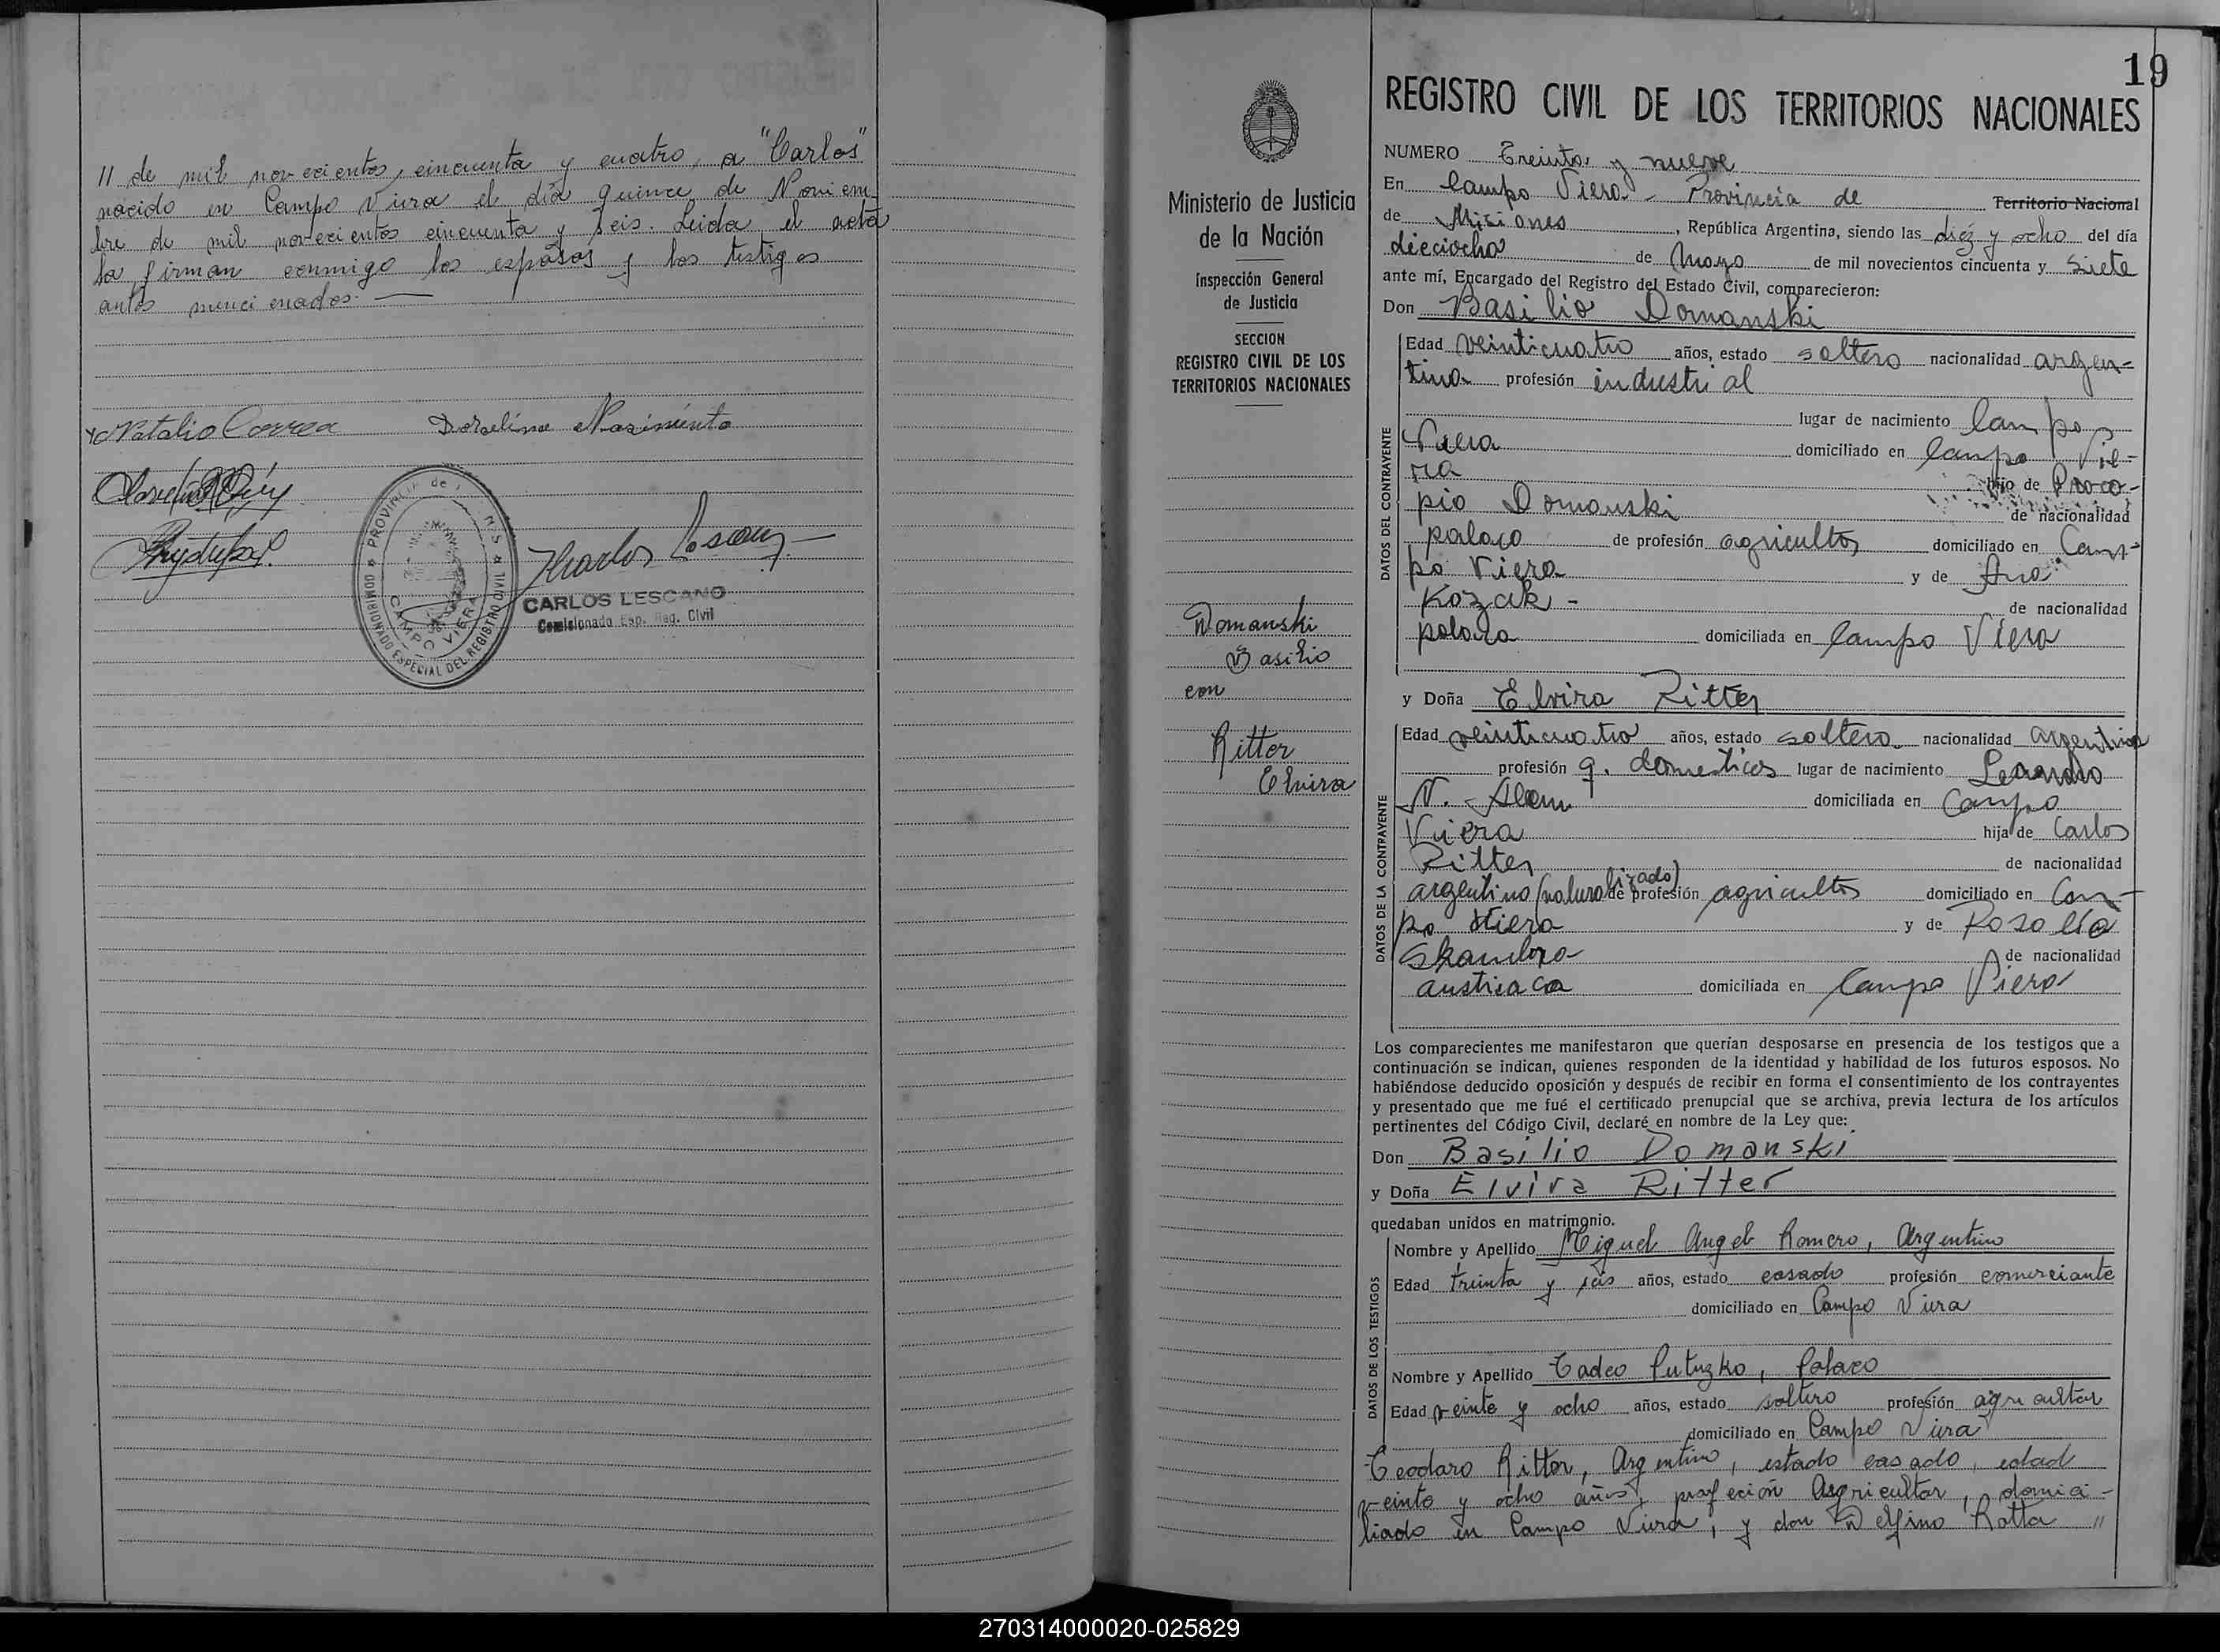 11 de mil novecientos cincuenta y cuatro, a "Carlos"
nacido en Campo Viera el día quince de Noviem
bre de mil novecientos cincuenta y seis. Leida el acta
la firman conmigo los esposos y los testigos
antes mencionados.
Natalio Correa Dorselina Nasimiento
PROVINCIA de
CAMPO VIERA
COMISIONADO ESPECIAL DEL REGISTRO CIVIL
CARLOS LESCANO
Comisionado Esp. Reg. Civil
19
Ministerio de Justicia
de la Nación
Inspección General
de Justicia
SECCION
REGISTRO CIVIL DE LOS
TERRITORIOS NACIONALES
Domanski
Basilio
con
Ritter
Elvira
REGISTRO CIVIL DE LOS TERRITORIOS NACIONALES
NUMERO Treinta y nueve
En Campo Viera - Provincia de Territorio Nacional
de Misiones, República Argentina, siendo las diéz y ocho del día
dieciocho de Mayo de mil novecientos cincuenta y siete
ante mí, Encargado del Registro del Estado Civil, comparecieron:
Don Basilio Domanski
DATOS DEL CONTRAYENTE
Edad veinticuatro años, estado soltero nacionalidad argen-
tina profesión industrial
lugar de nacimiento Campo
Viera domiciliado en Campo Vie-
ra hijo de Proco-
pio Domanski de nacionalidad
polaco de profesión agricultor domiciliado en Cam-
po Viera y de Ana
Kozak - de nacionalidad
polaca domiciliada en Campo Viera
y Doña Elvira Ritter
DATOS DE LA CONTRAYENTE
Edad veinticuatro años, estado soltera nacionalidad argentina
profesión q. domesticos lugar de nacimiento Leandro
N. Alem domiciliada en Campo
Viera hija de Carlos
Ritter de nacionalidad
argentino (naturalizado) de profesión agricultor domiciliado en Cam-
po Viera y de Rosalía
de nacionalidad
austriaca domiciliada en Campo Viera
Los comparecientes me manifestaron que querían desposarse en presencia de los testigos que a
continuación se indican, quienes responden de la identidad y habilidad de los futuros esposos. No
habiéndose deducido oposición y después de recibir en forma el consentimiento de los contrayentes
y presentado que me fué el certificado prenupcial que se archiva, previa lectura de los artículos
pertinentes del Código Civil, declaré en nombre de la Ley que:
Don Basilio Domanski
y Doña Elvira Ritter
quedaban unidos en matrimonio.
DATOS DE LOS TESTIGOS
Nombre y Apellido Miguel Angel Romero, Argentino
Edad treinta y seis años, estado casado profesión comerciante
domiciliado en Campo Viera
Nombre y Apellido Tadeo Putuzko, Polaco
Edad veinte y ocho años, estado soltero profesión agricultor
domiciliado en Campo Viera
Teodoro Ritter, Argentino, estado casado, edad
veinte y ocho años, profeción Agricultor, domici-
liado en Campo Viera, y don Delfino Rotta 11
270314000020-025829